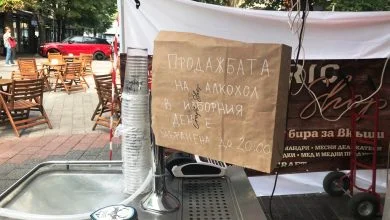 ПРОДАЖБАТА
НА АЛКОХОЛ
В ИЗБОРНИЯ
ДЕН
ЗАБРАНЕНА ДО 20:00
бира за вкъщи
МЕСНИ ДЕЛИКАТЕСИ
МЕД И МЕДНИ